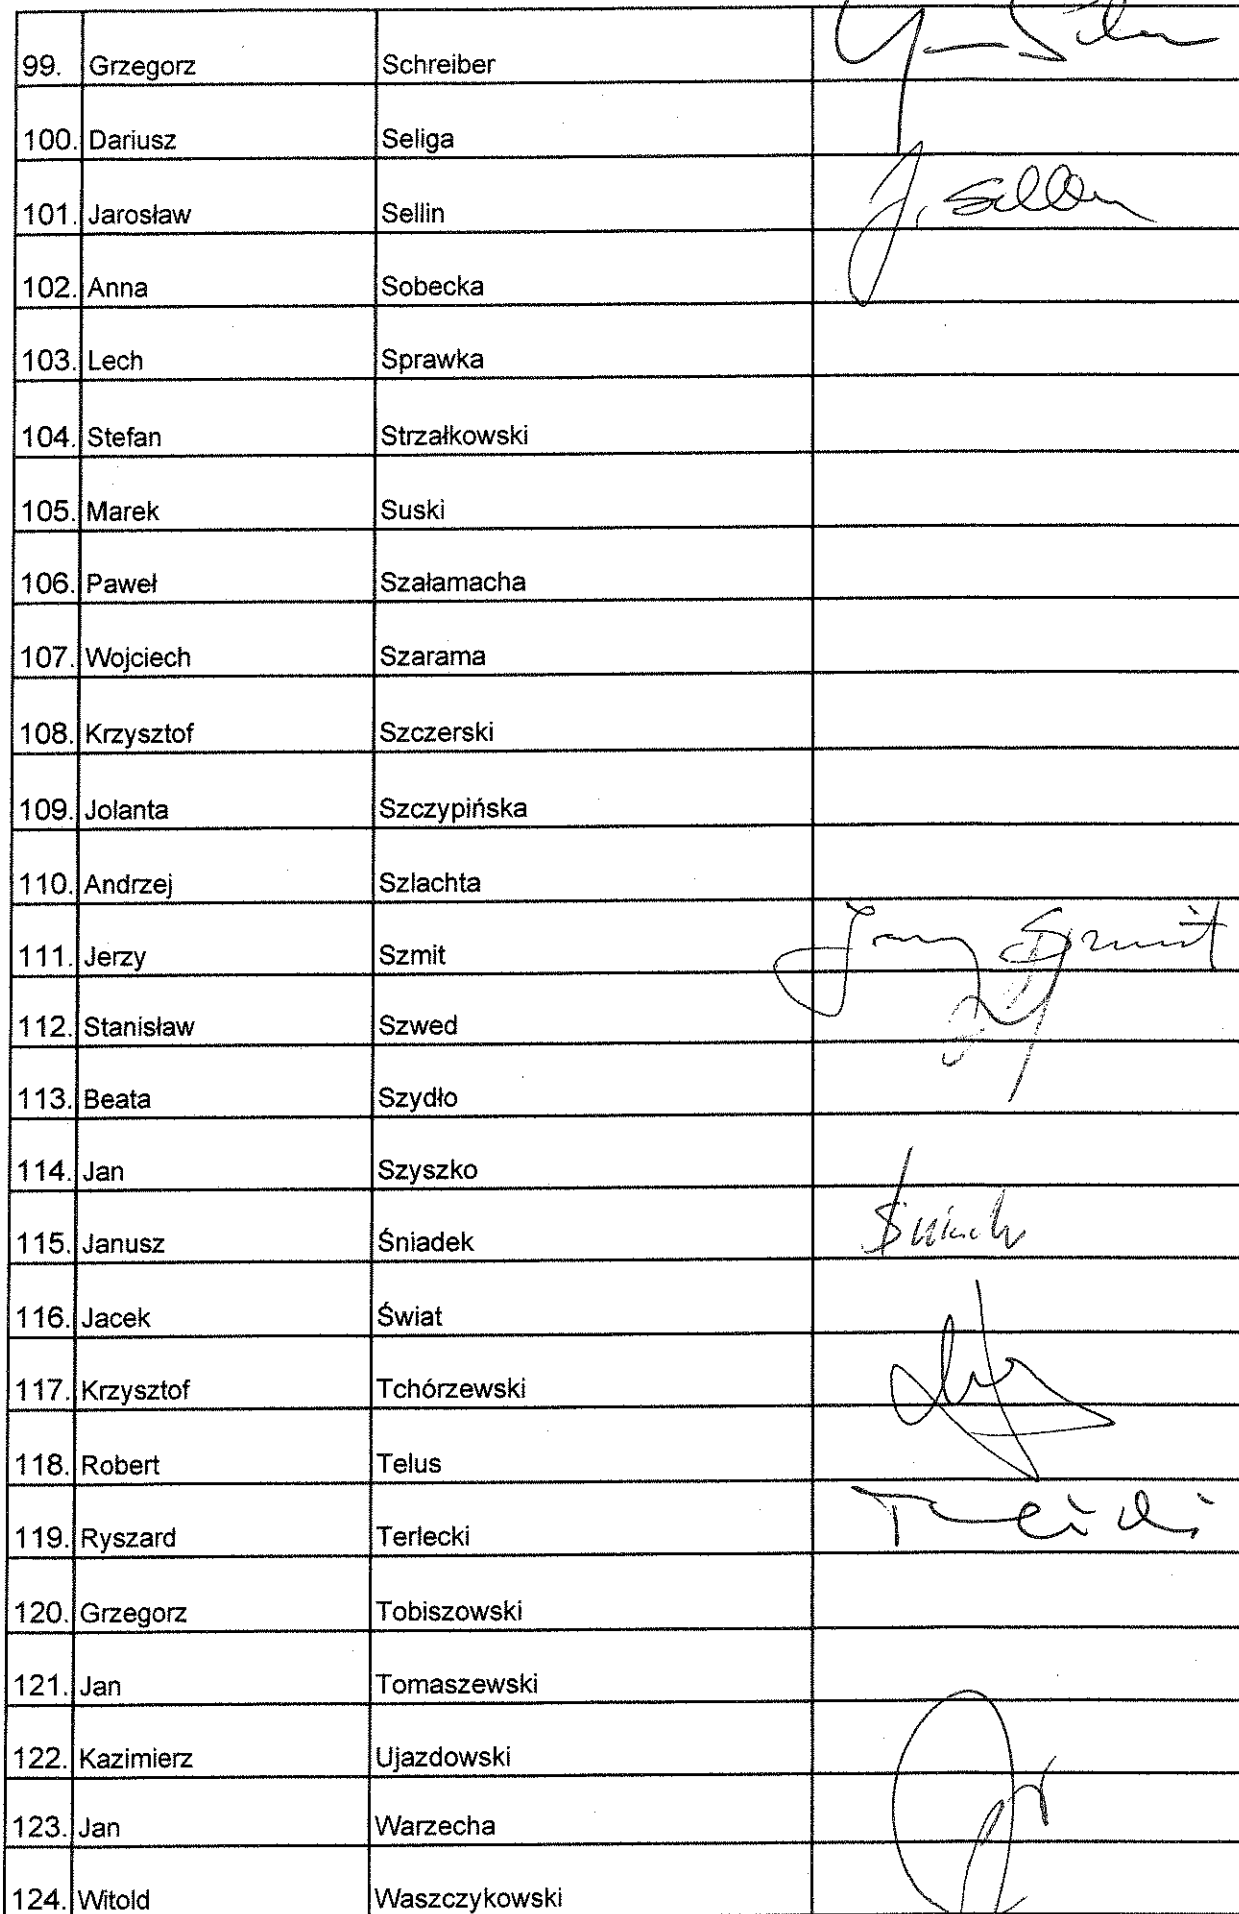 99. Grzegorz Schreiber
100. Dariusz Seliga
101. Jarosław Sellin J. Sellin
102. Anna Sobecka
103. Lech Sprawka
104. Stefan Strzałkowski
105. Marek Suski
106. Paweł Szałamacha
107. Wojciech Szarama
108. Krzysztof Szczerski
109. Jolanta Szczypińska
110. Andrzej Szlachta
111. Jerzy Szmit Jerzy Szmit
112. Stanisław Szwed
113. Beata Szydło
114. Jan Szyszko
115. Janusz Śniadek
116. Jacek Świat
117. Krzysztof Tchórzewski
118. Robert Telus
119. Ryszard Terlecki
120. Grzegorz Tobiszowski
121. Jan Tomaszewski
122. Kazimierz Ujazdowski
123. Jan Warzecha
124. Witold Waszczykowski